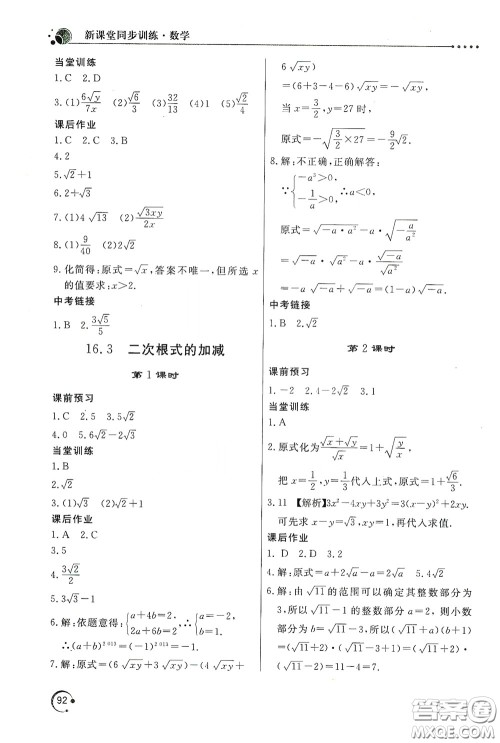 新课堂同步训练·数学
当堂训练
1.C 2.D
3.(1)6√y/7x (2)√6/3 (3)32/13 (4)1 (5)√2/4
课后作业
1.C 2.C 3.B
4.2
5.√2+1
6.2+√3
7.(1)4√13 (2)√3xy/2x
8.(1)9/40 (2)2√2
9.化简得:原式=√x,答案不唯一,但所选x
的值要求:x>2.
中考链接
1.B 2.3√5/5
16.3 二次根式的加减
第1课时
课前预习
1.C 2.5 3.5√2
4.0 5.6√2-2√3
当堂训练
1.B
2.√2
3.(1)√5 (2)√2
课后作业
1.A 2.C
3.5
4.3√2/2
5.3√3
6.解:依题意得:{a+4b=2, 2a+6b=2 {a=-4, b=2
∴(a+b)²⁰¹³=(-1)²⁰¹³=-1.
7.解:原式=(6√xy+3√xy)-(4√xy+
6√xy)
=(6+3-4-6)√xy=-√xy,
当x=3/2,y=27时,
原式=-√(3/2×27)=-9/2√2.
8.解:不正确,正确解答:
∵{-a³>0, -1/a>0, ∴a<0.
原式=√(-a·a²)-a·√(-a/a²)
=√-a·√a²-a·√-a/√a²
=-a√-a+√-a=(1-a)√-a.
中考链接
1.B 2.√2
第2课时
课前预习
1.-2 2.4-2√3 3.1
当堂训练
1.A
2.原式化为(√x+√y)/√x=1+√(y/x),
把x=1/2,y=1/3代入上式,原式=1+√6/3.
3.11 【解析】3x²-4xy+3y²=3(x-y)²+2xy.
可先求x-y=√3,xy=1,再代入求值.
课后作业
1.D 2.D 3.2
4.原式=a+2√a-a=2√a 5.4√2
6.解:由√11的范围可以确定其整数部分为
3,所以√11-1的整数部分a=2,则小数
部分为√11-3,b=√11-3,所以
(√11+a)(b+1)=(√11+2)(√11-3+1)
=(√11+2)(√11-2)=11-4=7.
92
答案圈
MXQE.COM